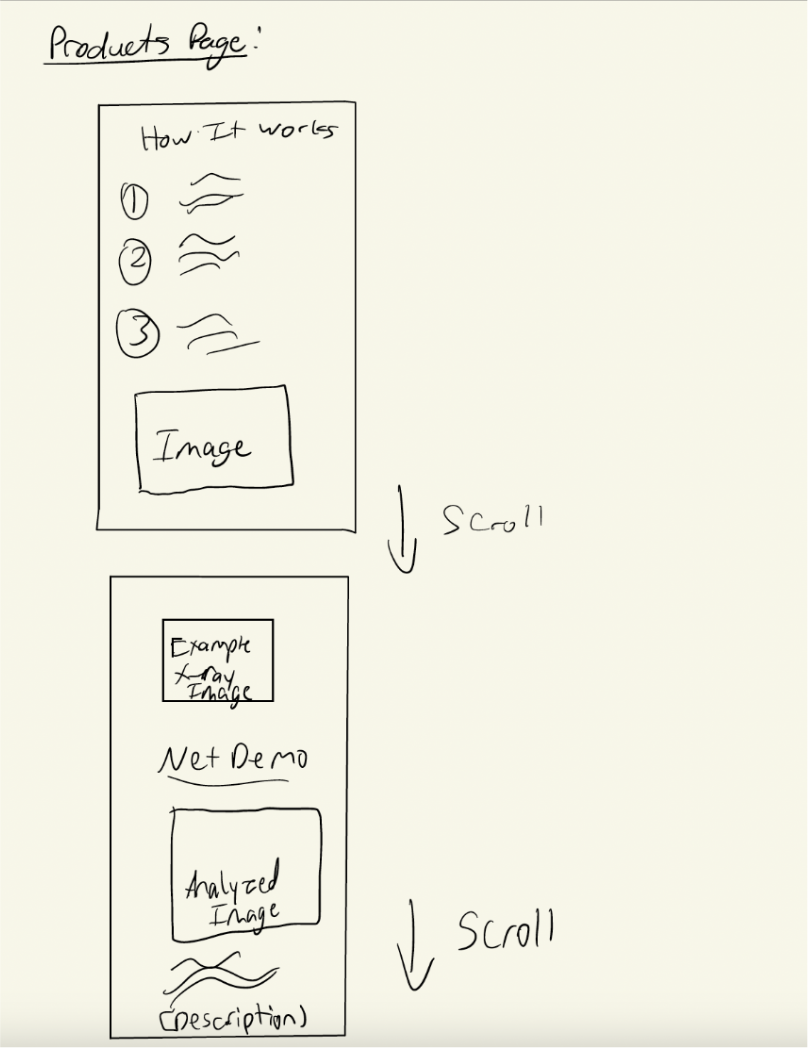 Products Page:
How It works
1
2
3
Image
Scroll
Example
X-ray
Image
Net Demo
Analyzed
Image
Scroll
(Description)